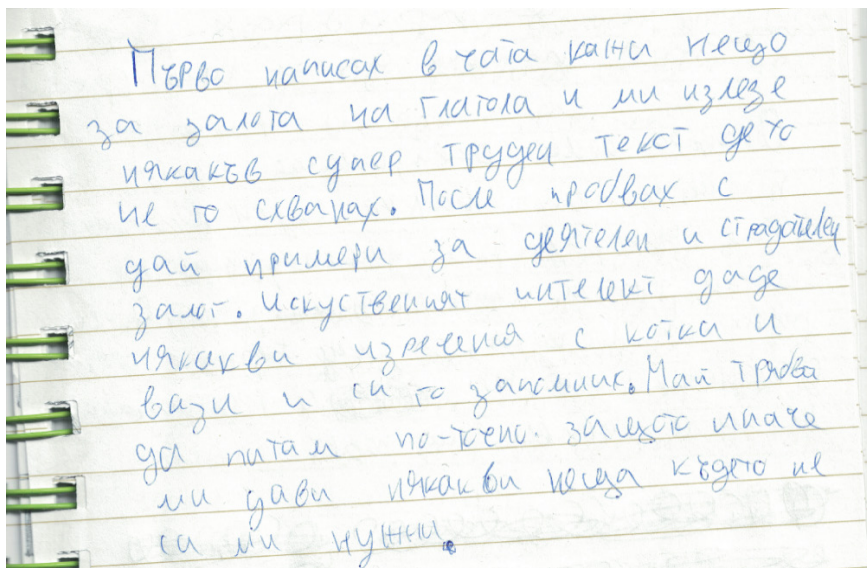 Първо написах в чата кажи нещо
за залота на глагола и ми излезе
някакъв супер труден текст дето
не го схванах. После пробвах с
дай примери за деятелен и страдателен
залог. Искуственият интелект даде
някакви изречения с котки и
вази и си го запомних. Май трябва
да питам по-точно. защото иначе
ми дава някакви неща където не
са ми нужни.